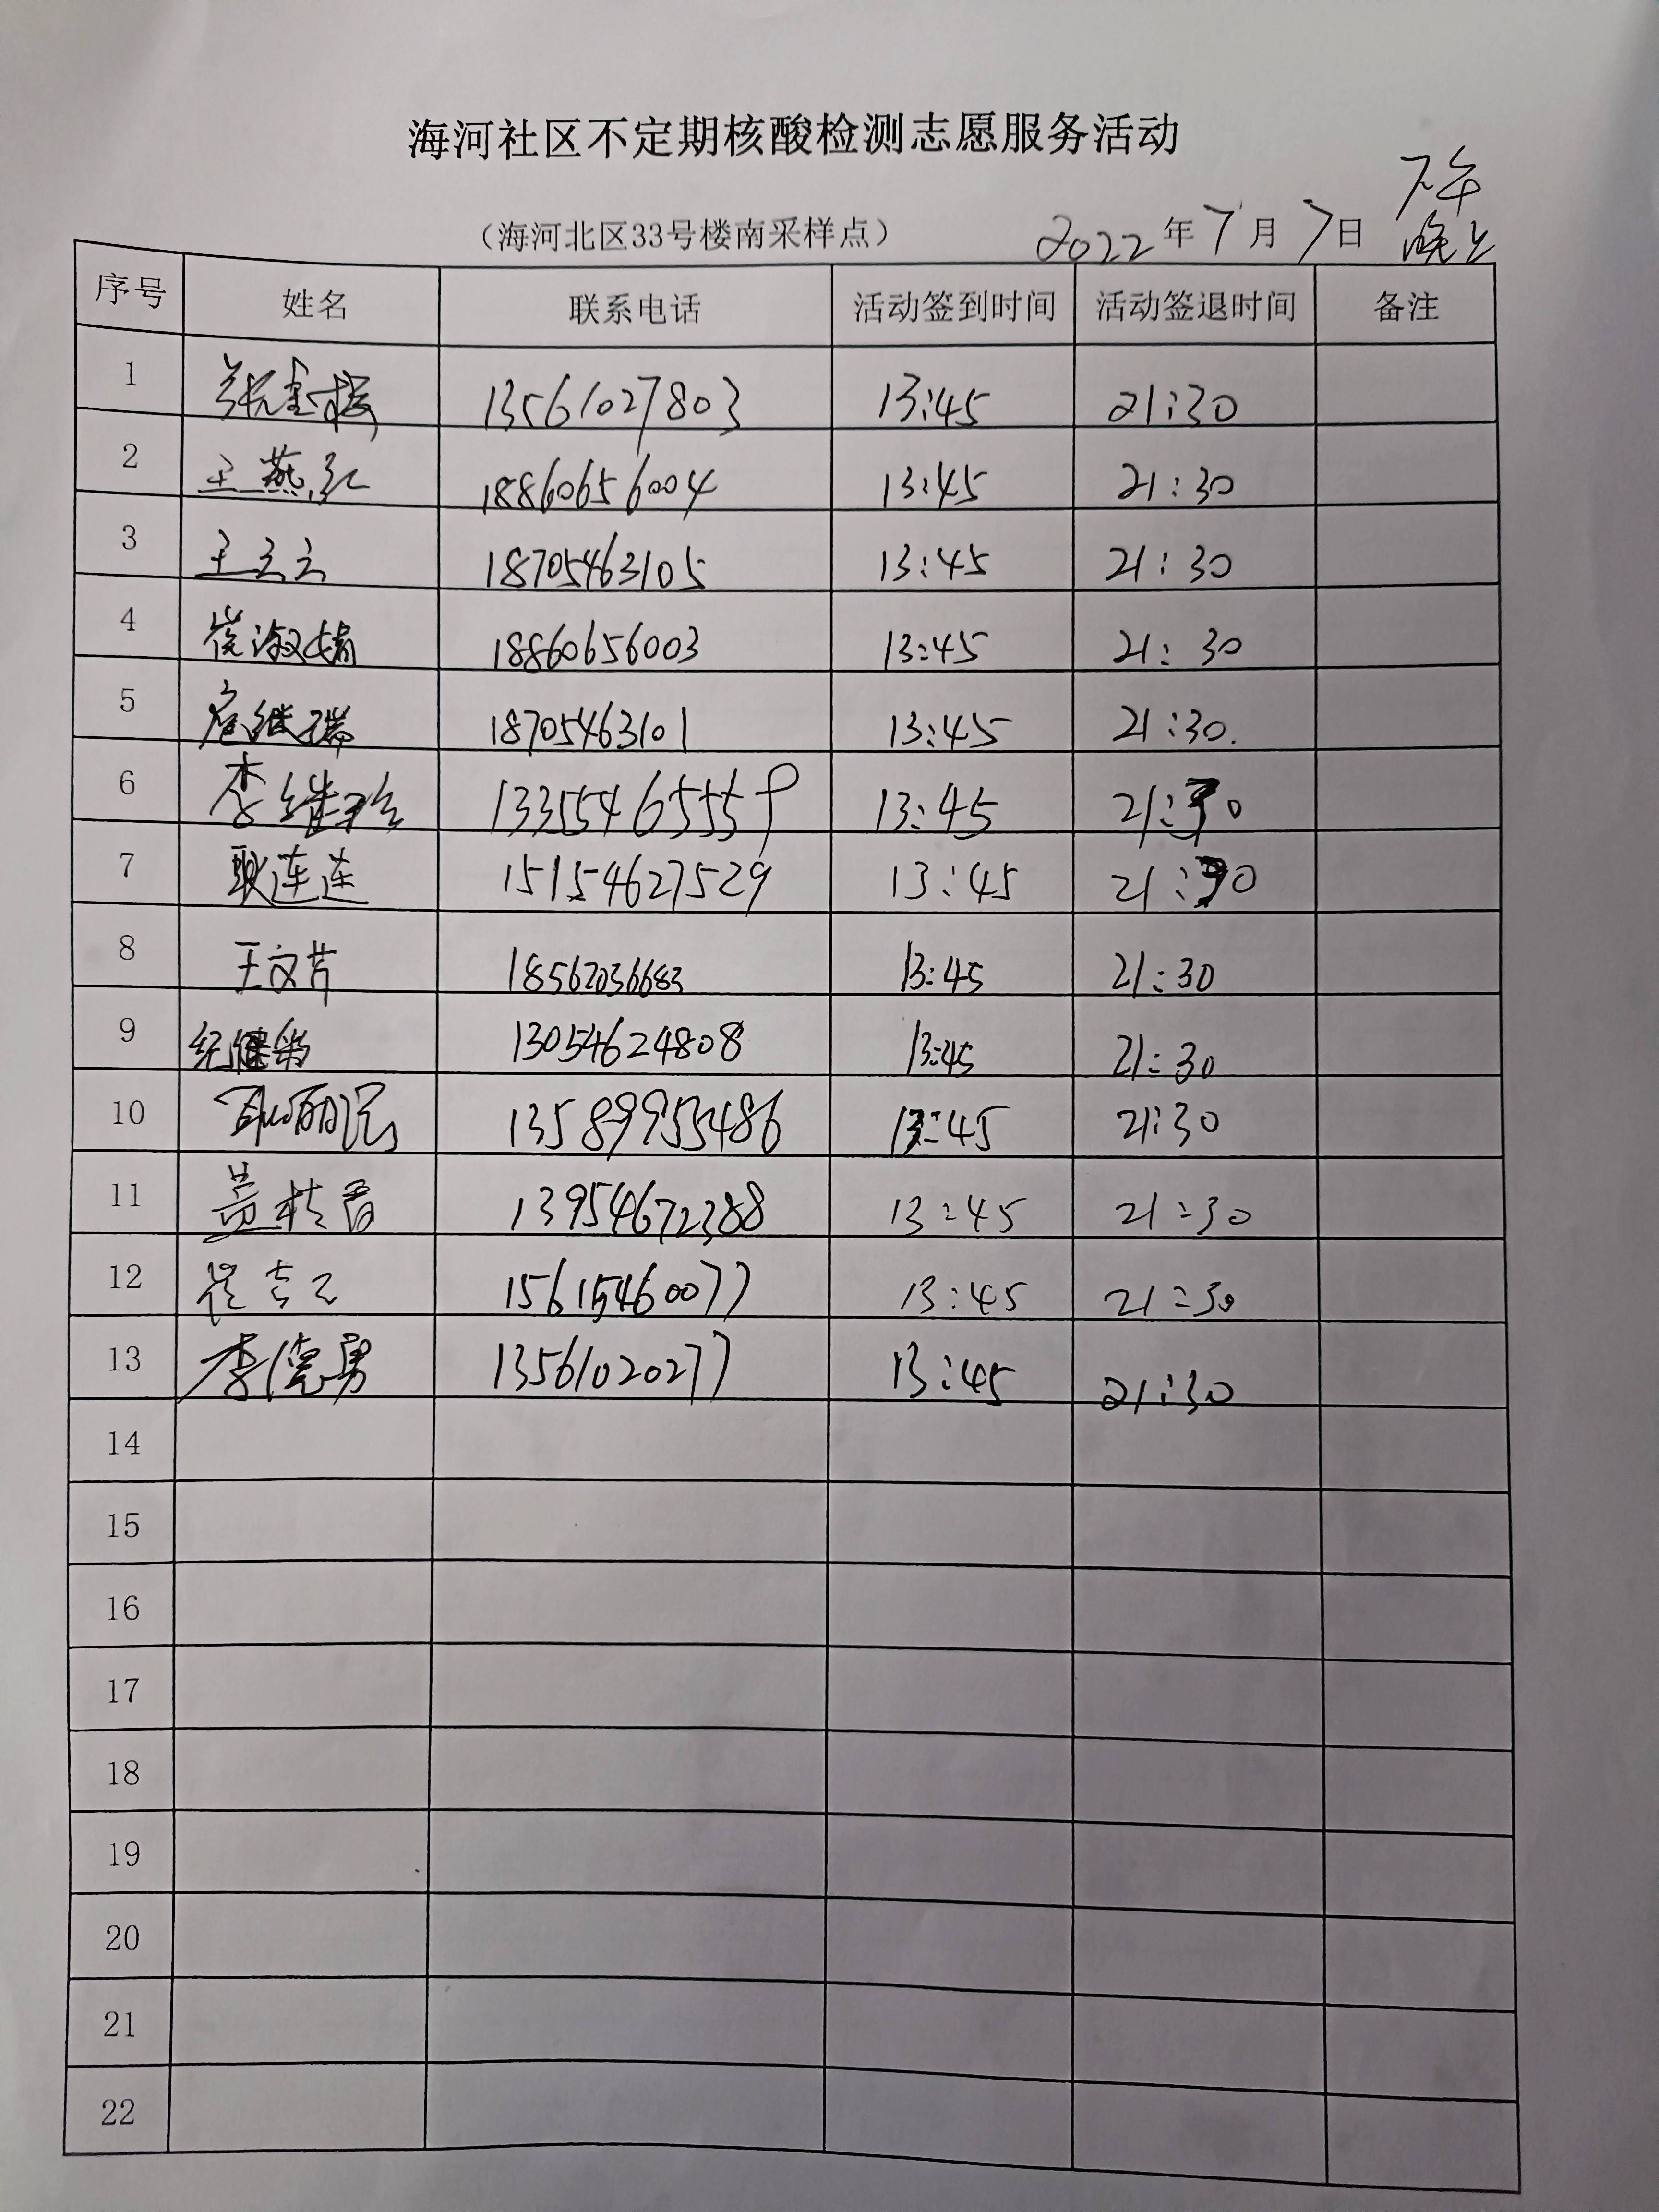 海河社区不定期核酸检测志愿服务活动
下午
（海河北区33号楼南采样点） 2022年7月7日 晚上
序号 姓名 联系电话 活动签到时间 活动签退时间 备注
1 13561027803 13:45 21:30
2 王燕红 18860656004 13:45 21:30
3 王云云 18705463105 13:45 21:30
4 崔淑娟 18860656003 13:45 21:30
5 扈继瑞 18705463101 13:45 21:30
6 李继珍 13355465559 13:45 21:30
7 耿连连 15154627529 13:45 21:30
8 王文芹 18562036683 13:45 21:30
9 13054624808 13:45 21:30
10 13589955486 13:45 21:30
11 盖枝香 13954672388 13:45 21:30
12 15615460077 13:45 21:30
13 李德勇 13561020277 13:45 21:30
14
15
16
17
18
19
20
21
22